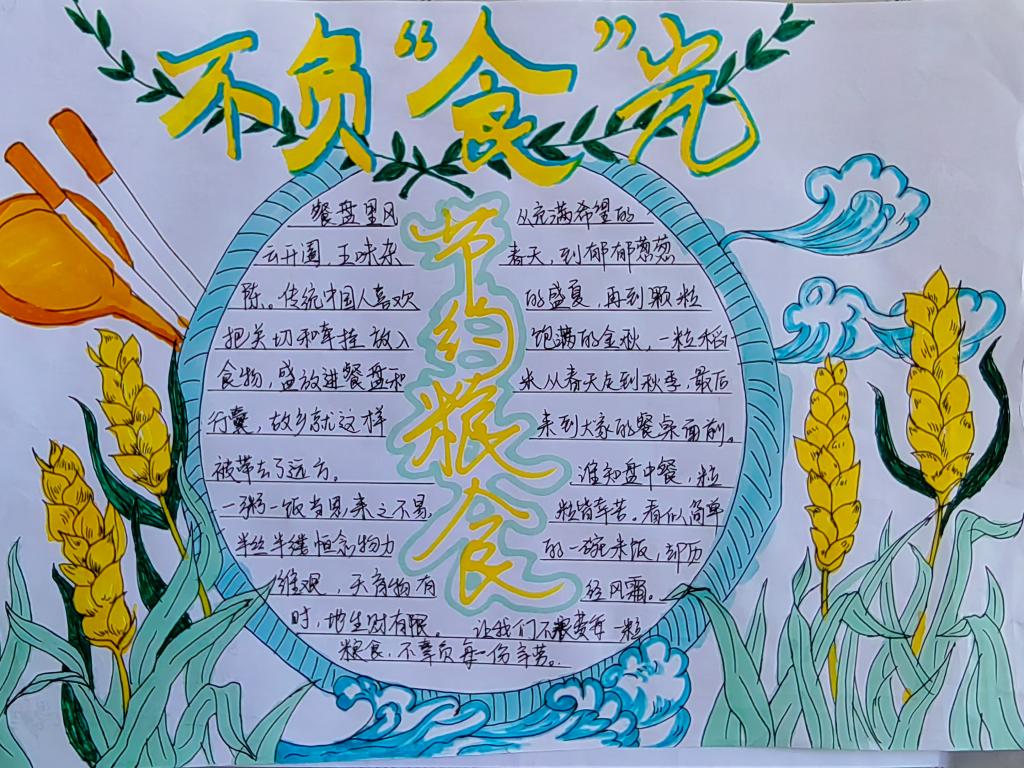 不负“食”光
节约粮食
餐盘里风
云开阖，五味杂
陈。传统中国人喜欢
把关切和牵挂放入
食物，盛放进餐盘和
行囊，故乡就这样
被带去了远方。
一粥一饭当思来之不易
半丝半缕恒念物力
维艰，天育物有
时，地生财有限。
从充满希望的
春天，到郁郁葱葱
的盛夏，再到颗粒
饱满的金秋，一粒稻
米从春天走到秋季，最后
来到大家的餐桌面前。
谁知盘中餐，粒
粒皆辛苦。看似简单
的一碗米饭，却历
经风霜。
让我们不浪费每一粒
粮食，不辜负每一份辛苦。